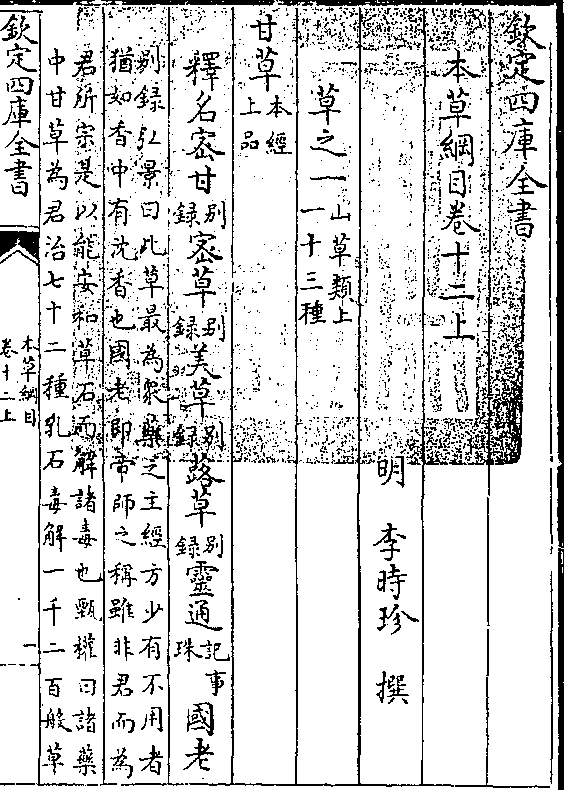 欽定四庫全書
本草綱目卷十二上
明 李時珍 撰
草之一 山草類上一十三種
甘草 本經上品
釋名蜜甘 别録 蜜草 别録 美草 别録 蕗草 别録 靈通 記事珠 國老
别録弘景曰此草最為衆藥之主經方少有不用者
猶如香中有沈香也國老即帝師之稱雖非君而為
君所宗是以能安和草石而解諸毒也甄權曰諸藥
中甘草為君治七十二種乳石毒解一千二百般草
欽定四庫全書
本草綱目
卷十二上
一